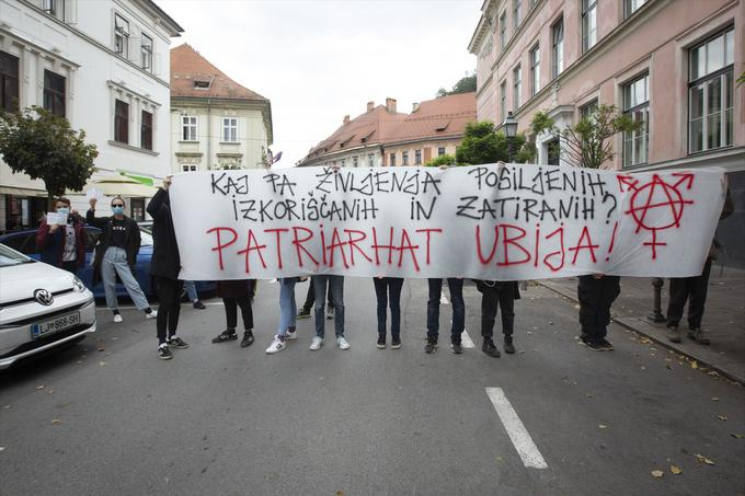 KAJ PA ŽIVLJENJA POSILJENIH,
IZKORIŠČANIH IN ZATIRANIH?
PATRIARHAT UBIJA!